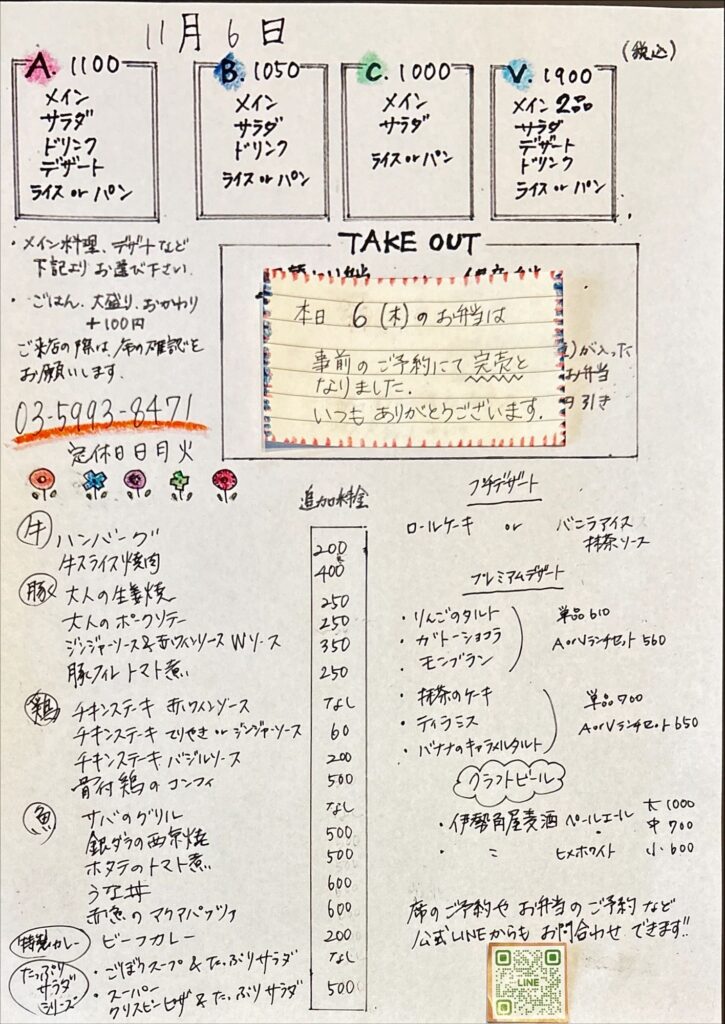 11月6日
(税込)
A. 1100
メイン
サラダ
ドリンク
デザート
ライス or パン
B. 1050
メイン
サラダ
ドリンク
ライス or パン
C. 1000
メイン
サラダ
ライス or パン
V. 1900
メイン 2品
サラダ
デザート
ドリンク
ライス or パン
・メイン料理、デザートなど
下記よりお選び下さい.
・ごはん、大盛り、おかわり
+100円
ご来店の際は、席の確認を
お願いします.
03-5993-8471
定休日 日月火
TAKE OUT
本日 6(木)のお弁当は
事前のご予約にて完売と
なりました.
いつもありがとうございます.
が入った
お弁当
引き
追加料金
牛 ハンバーグ 200
牛スライス焼肉 400
豚 大人の生姜焼 250
大人のポークソテー 250
ジンジャーソース&赤ワインソース Wソース 350
豚フィレトマト煮 250
鶏 チキンステーキ 赤ワインソース なし
チキンステーキ てりやき or ジンジャーソース 60
チキンステーキ バジルソース 200
骨付鶏のコンフィ 500
魚 サバのグリル なし
銀ダラの西京焼 500
ホタテのトマト煮 500
うな丼 600
赤魚のアクアパッツァ 600
特製カレー ビーフカレー 200
たっぷりサラダシリーズ ・ごぼうスープ&たっぷりサラダ なし
・スーパークリスピーピザ&たっぷりサラダ 500
プチデザート
ロールケーキ or バニラアイス
抹茶ソース
プレミアムデザート
・りんごのタルト
・ガトーショコラ
・モンブラン
単品 610
A or Vランチセット 560
・抹茶のケーキ
・ティラミス
・バナナのキャラメルタルト
単品 700
A or Vランチセット 650
クラフトビール
・伊勢角屋麦酒 ペールエール
・ 〃 ヒメホワイト
大 1000
中 700
小 600
席のご予約や お弁当のご予約など
公式LINEからも お問合わせ できます!!
LINE